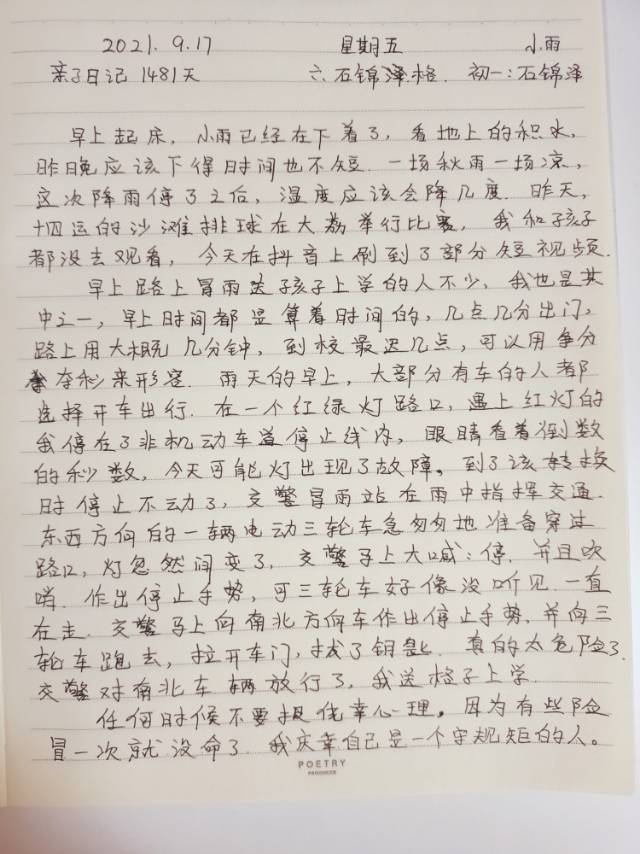 2021. 9.17 星期五 小雨
亲子日记 1481天 六石锦泽.格. 初一:石锦泽
早上起床,小雨已经在下着了,看地上的积水,
昨晚应该下得时间也不短.一场秋雨一场凉,
这次降雨停了之后,温度应该会降几度.昨天,
十四运的沙滩排球在大荔举行比赛,我和孩子
都没去观看,今天在抖音上刷到了部分短视频.
早上路上冒雨送孩子上学的人不少,我也是其
中之一,早上时间都是算着时间的,几点几分出门,
路上用大概几分钟,到校最迟几点,可以用争分
夺秒来形容.雨天的早上,大部分有车的人都
选择开车出行.在一个红绿灯路口,遇上红灯的
我停在了非机动车道停止线内,眼睛看着倒数
的秒数,今天可能灯出现了故障,到了该转换
时停止不动了,交警冒雨站在雨中指挥交通.
东西方向的一辆电动三轮车急匆匆地准备穿过
路口,灯忽然间变了,交警马上大喊:停.并且吹
哨.作出停止手势,可三轮车好像没听见一直
在走.交警马上向南北方向车作出停止手势.并向三
轮车跑去,拉开车门,拔了钥匙.真的太危险了.
交警对南北车辆放行了,我送格子上学.
任何时候不要报侥幸心理,因为有些险
冒一次就没命了.我庆幸自己是一个守规矩的人。
POETRY
PRODUCER